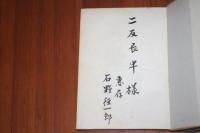 二反長半様
恵存
石野径一郎